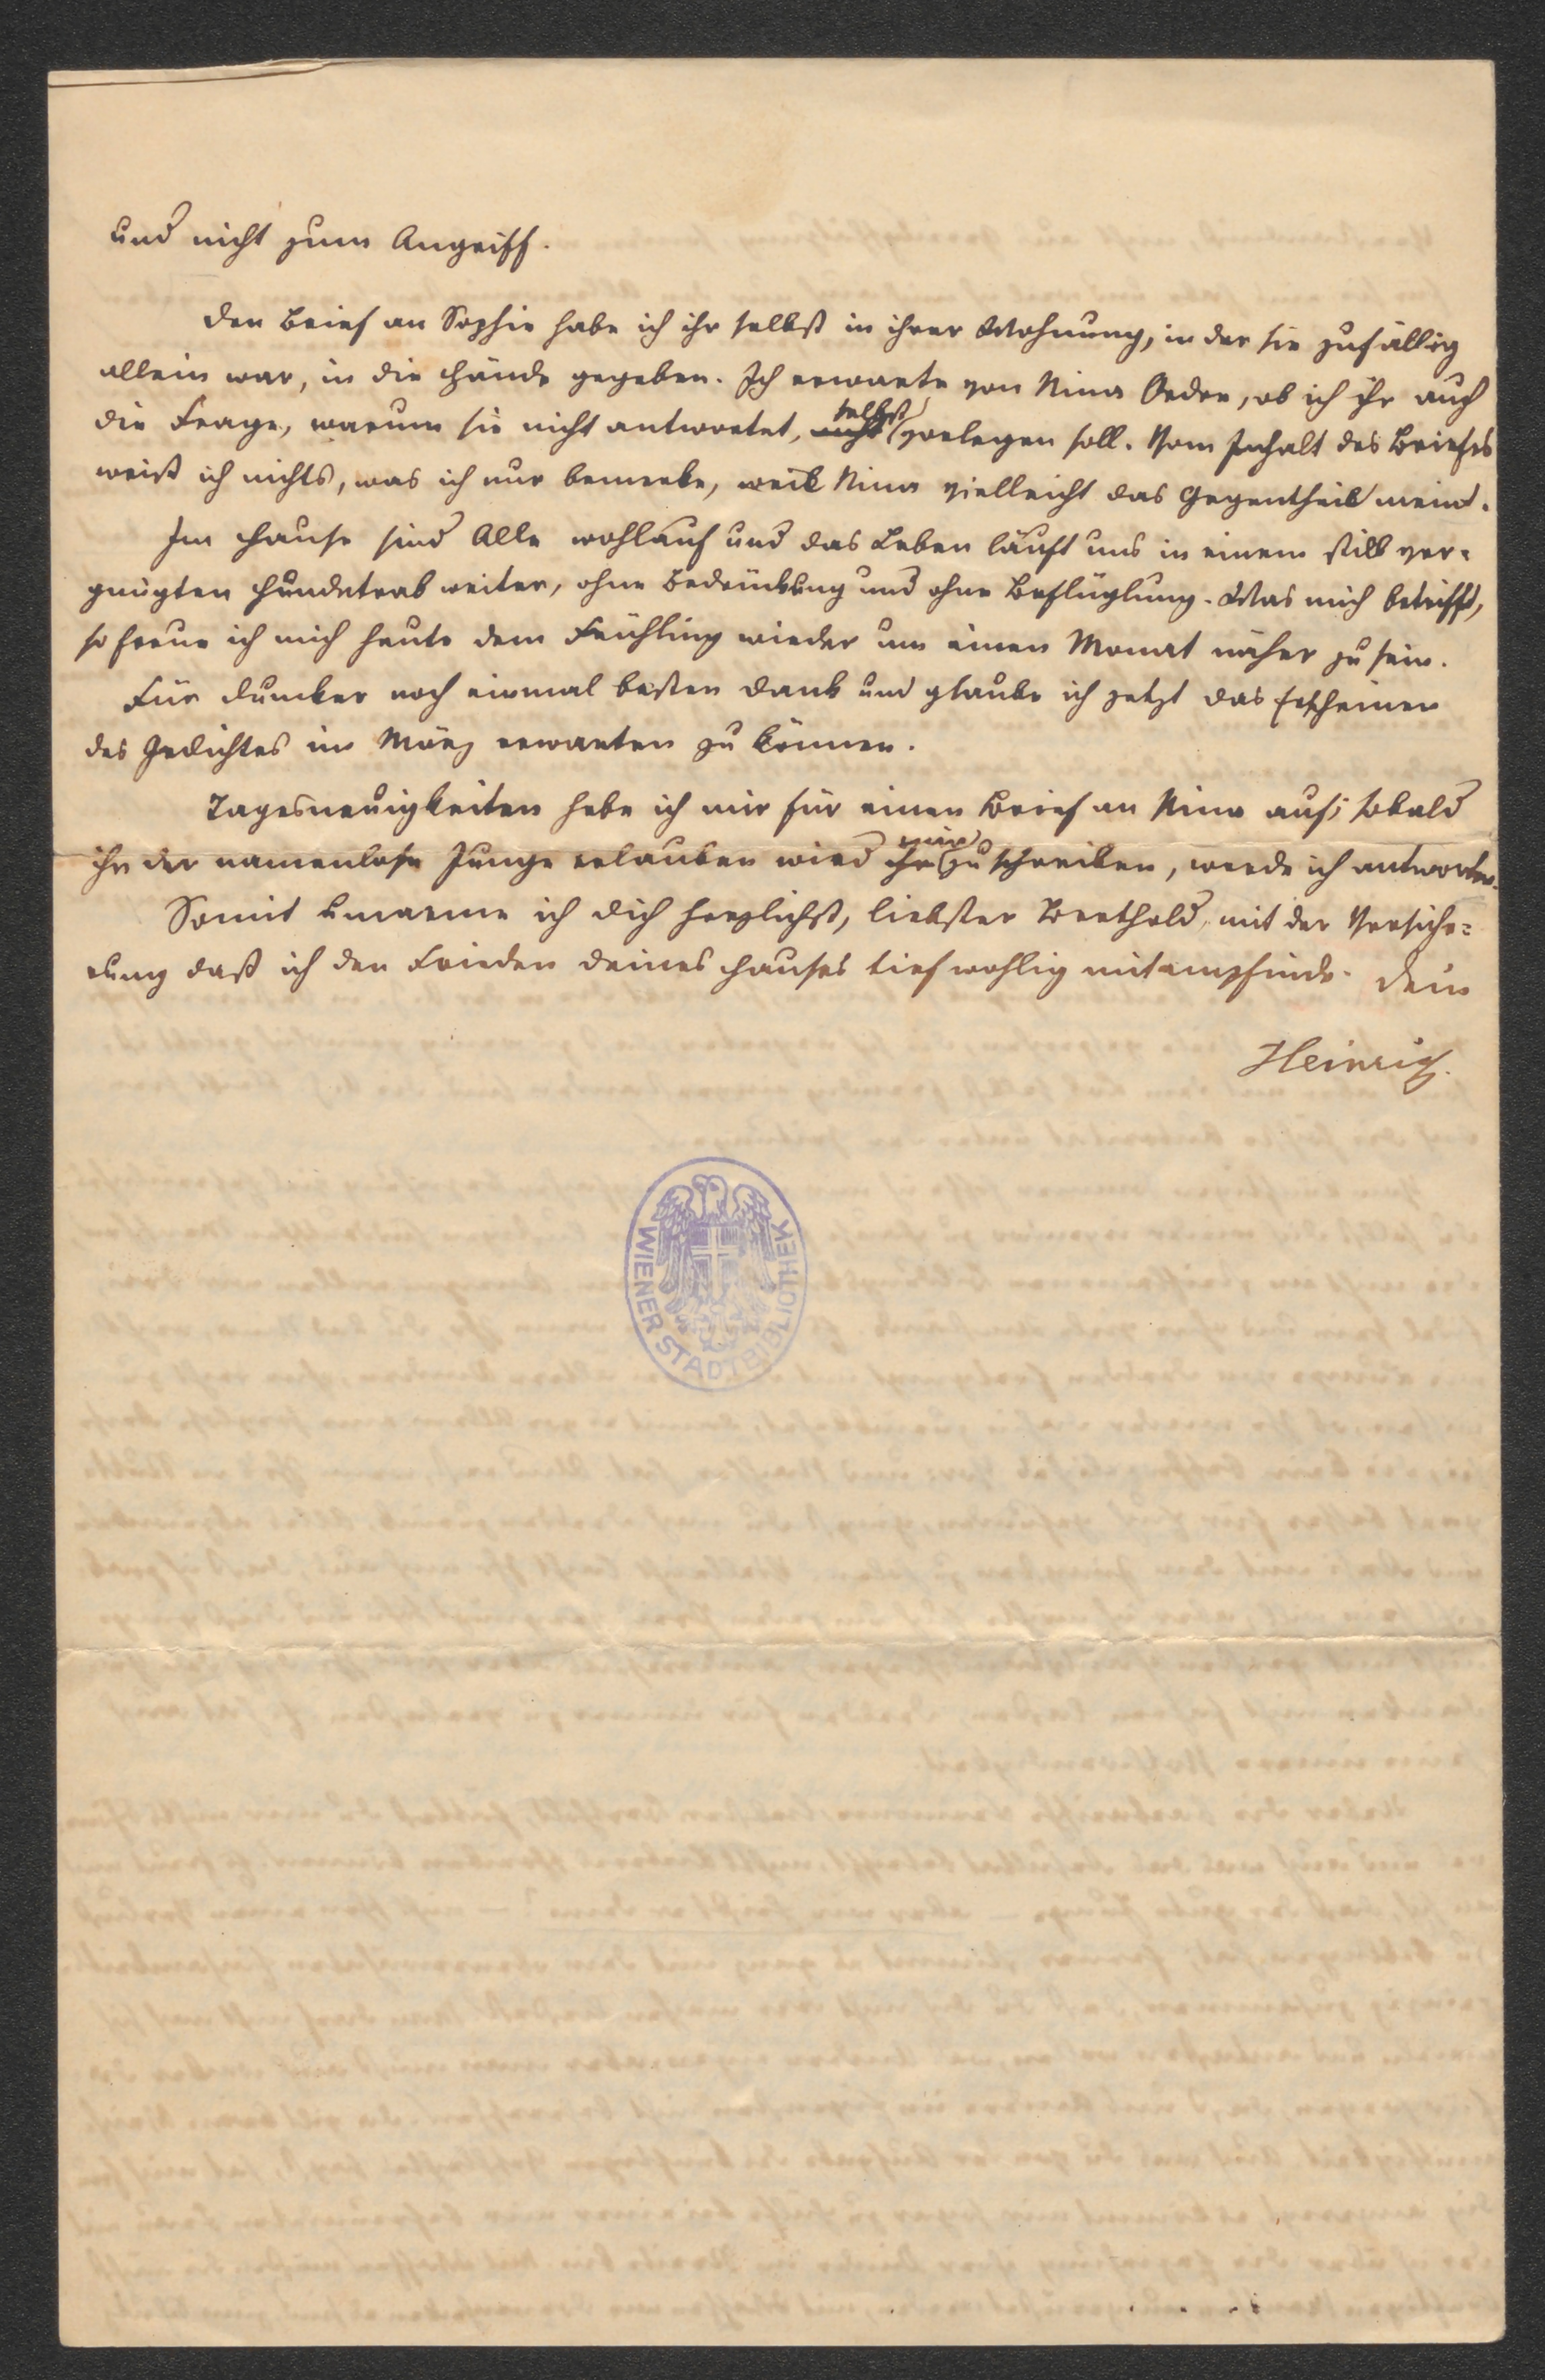 und nicht zum Angriff.
Den Brief an Sophie habe ich ihr selbst in ihrer Wohnung, in der sie zufällig
allein war, in die Hände gegeben. Ich erwarte von Nina Ordre, ob ich ihr auch
die Frage, warum sie nicht antwortet, nicht selbst vorlegen soll. Vom Inhalt des Briefes
weiß ich nichts, was ich nur bemerke, weil Nina vielleicht das Gegentheil meint.
Im Hause sind Alle wohlauf und das Leben läuft uns in einem still ver-
gnügten Hundetrab weiter, ohne Bedrückung und ohne Beflüglung. Was mich betrifft,
so freue ich mich heute dem Frühling wieder um einen Monat näher zu sein.
Für Duncker noch einmal besten Dank und glaube ich jetzt das Erscheinen
des Gedichtes im März erwarten zu können.
Tagesneuigkeiten hebe ich mir für einen Brief an Nina auf; sobald
ihr der namenlose Junge erlauben wird ihr mir zu schreiben, werde ich antworten.
Somit umarme ich dich herzlichst, liebster Berthold, mit der Versiche-
rung daß ich den Frieden deines Hauses tief wohlig mitempfinde. Dein
Heinrich.
WIENER STADTBIBLIOTHEK